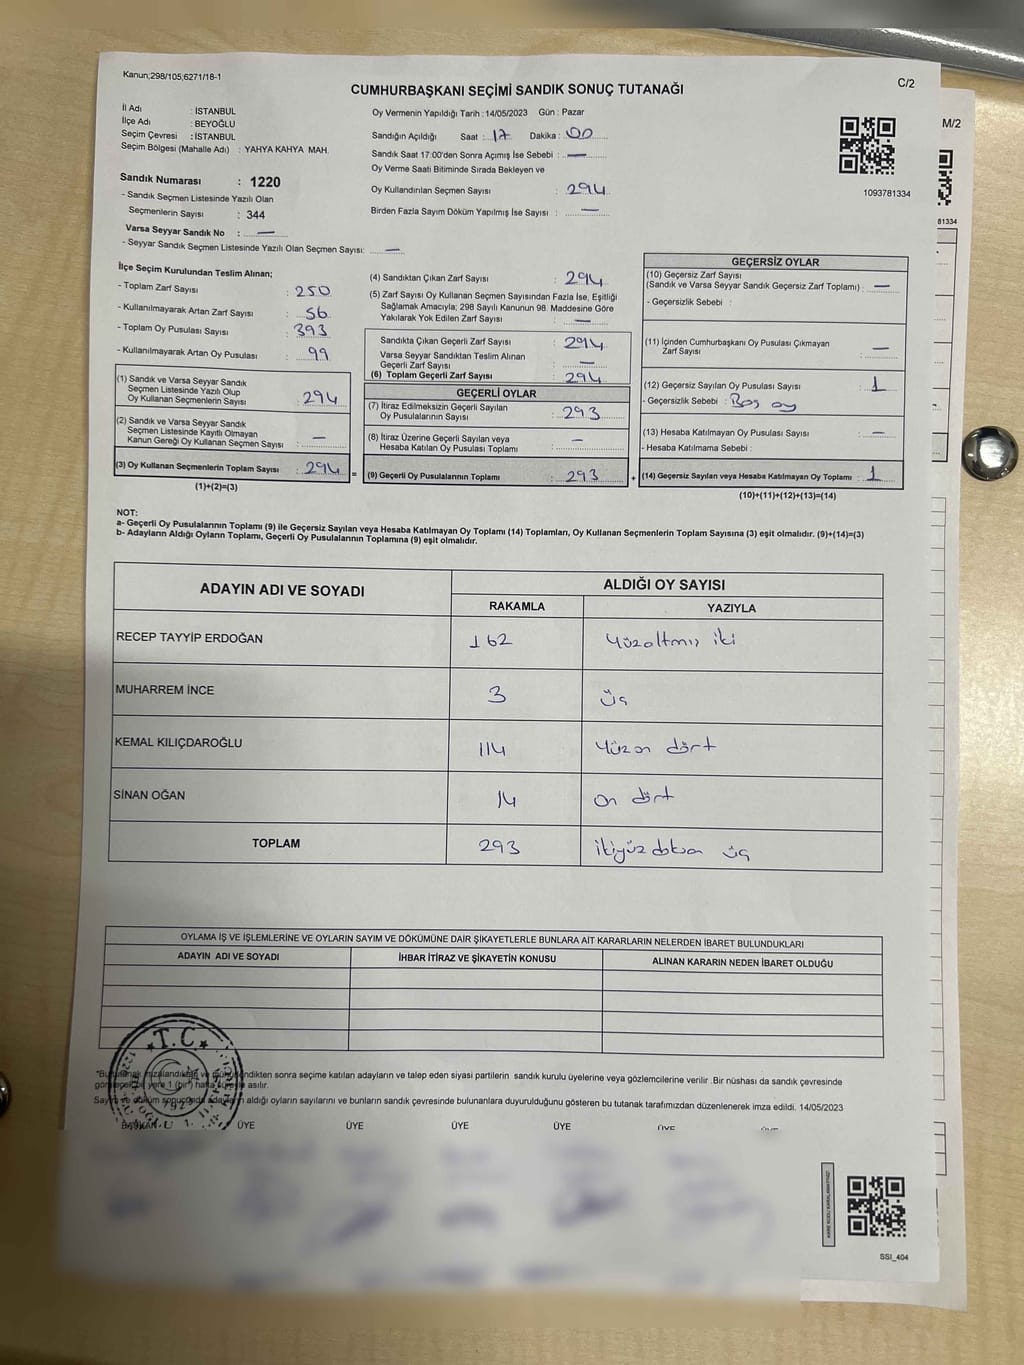 Kanun;298/105;6271/18-1
C/2
CUMHURBAŞKANI SEÇİMİ SANDIK SONUÇ TUTANAĞI
M/2
İl Adı : İSTANBUL
İlçe Adı : BEYOĞLU
Seçim Çevresi : İSTANBUL
Seçim Bölgesi (Mahalle Adı) : YAHYA KAHYA MAH.
Sandık Numarası : 1220
- Sandık Seçmen Listesinde Yazılı Olan
Seçmenlerin Sayısı : 344
Varsa Seyyar Sandık No : —
- Seyyar Sandık Seçmen Listesinde Yazılı Olan Seçmen Sayısı: —
Oy Vermenin Yapıldığı Tarih : 14/05/2023 Gün : Pazar
Sandığın Açıldığı Saat : 17 Dakika : 00
Sandık Saat 17:00'den Sonra Açımış İse Sebebi : —
Oy Verme Saati Bitiminde Sırada Bekleyen ve
Oy Kullandırılan Seçmen Sayısı : 294
Birden Fazla Sayım Döküm Yapılmış İse Sayısı : —
1093781334
81334
İlçe Seçim Kurulundan Teslim Alınan;
- Toplam Zarf Sayısı : 250
- Kullanılmayarak Artan Zarf Sayısı : 56
- Toplam Oy Pusulası Sayısı : 393
- Kullanılmayarak Artan Oy Pusulası : 99
(1) Sandık ve Varsa Seyyar Sandık
Seçmen Listesinde Yazılı Olup
Oy Kullanan Seçmenlerin Sayısı : 294
(2) Sandık ve Varsa Seyyar Sandık
Seçmen Listesinde Kayıtlı Olmayan
Kanun Gereği Oy Kullanan Seçmen Sayısı : —
(3) Oy Kullanan Seçmenlerin Toplam Sayısı : 294 =
(1)+(2)=(3)
(4) Sandıktan Çıkan Zarf Sayısı : 294
(5) Zarf Sayısı Oy Kullanan Seçmen Sayısından Fazla İse, Eşitliği
Sağlamak Amacıyla; 298 Sayılı Kanunun 98. Maddesine Göre
Yakılarak Yok Edilen Zarf Sayısı : —
Sandıkta Çıkan Geçerli Zarf Sayısı : 294
Varsa Seyyar Sandıktan Teslim Alınan
Geçerli Zarf Sayısı : —
(6) Toplam Geçerli Zarf Sayısı : 294
GEÇERLİ OYLAR
(7) İtiraz Edilmeksizin Geçerli Sayılan
Oy Pusulalarının Sayısı : 293
(8) İtiraz Üzerine Geçerli Sayılan veya
Hesaba Katılan Oy Pusulası Toplamı : —
(9) Geçerli Oy Pusulalarının Toplamı : 293 +
GEÇERSİZ OYLAR
(10) Geçersiz Zarf Sayısı
(Sandık ve Varsa Seyyar Sandık Geçersiz Zarf Toplamı) : —
- Geçersizlik Sebebi :
(11) İçinden Cumhurbaşkanı Oy Pusulası Çıkmayan
Zarf Sayısı : —
(12) Geçersiz Sayılan Oy Pusulası Sayısı : 1
- Geçersizlik Sebebi : Boş oy
(13) Hesaba Katılmayan Oy Pusulası Sayısı : —
- Hesaba Katılmama Sebebi :
(14) Geçersiz Sayılan veya Hesaba Katılmayan Oy Toplamı : 1
(10)+(11)+(12)+(13)=(14)
NOT:
a- Geçerli Oy Pusulalarının Toplamı (9) ile Geçersiz Sayılan veya Hesaba Katılmayan Oy Toplamı (14) Toplamları, Oy Kullanan Seçmenlerin Toplam Sayısına (3) eşit olmalıdır. (9)+(14)=(3)
b- Adayların Aldığı Oyların Toplamı, Geçerli Oy Pusulalarının Toplamına (9) eşit olmalıdır.
ADAYIN ADI VE SOYADI
ALDIĞI OY SAYISI
RAKAMLA YAZIYLA
RECEP TAYYİP ERDOĞAN 162 yüzaltmış iki
MUHARREM İNCE 3 üç
KEMAL KILIÇDAROĞLU 114 yüzon dört
SİNAN OĞAN 14 on dört
TOPLAM 293 ikiyüz doksan üç
OYLAMA İŞ VE İŞLEMLERİNE VE OYLARIN SAYIM VE DÖKÜMÜNE DAİR ŞİKAYETLERLE BUNLARA AİT KARARLARIN NELERDEN İBARET BULUNDUKLARI
ADAYIN ADI VE SOYADI İHBAR İTİRAZ VE ŞİKAYETİN KONUSU ALINAN KARARIN NEDEN İBARET OLDUĞU
T.C.
*Bu tutanak imzalandıktan ve mühürlendikten sonra seçime katılan adayların ve talep eden siyasi partilerin sandık kurulu üyelerine veya gözlemcilerine verilir .Bir nüshası da sandık çevresinde
görülecek bir yere 1 (bir) hafta süreyle asılır.
Sayım ve döküm sonucunda adayların aldığı oyların sayılarını ve bunların sandık çevresinde bulunanlara duyurulduğunu gösteren bu tutanak tarafımızdan düzenlenerek imza edildi. 14/05/2023
BAŞKAN ÜYE ÜYE ÜYE ÜYE ÜYE
SSI_404